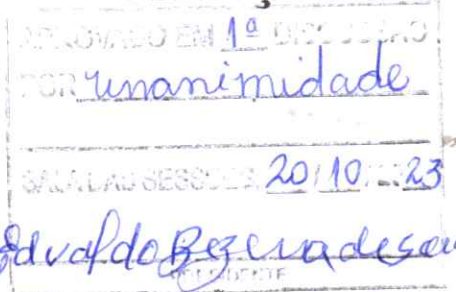 APROVADO EM 1ª DISCUSSÃO
POR unanimidade
SALA DAS SESSÕES 20/10/23
Edvaldo Bezerra de
PRESIDENTE